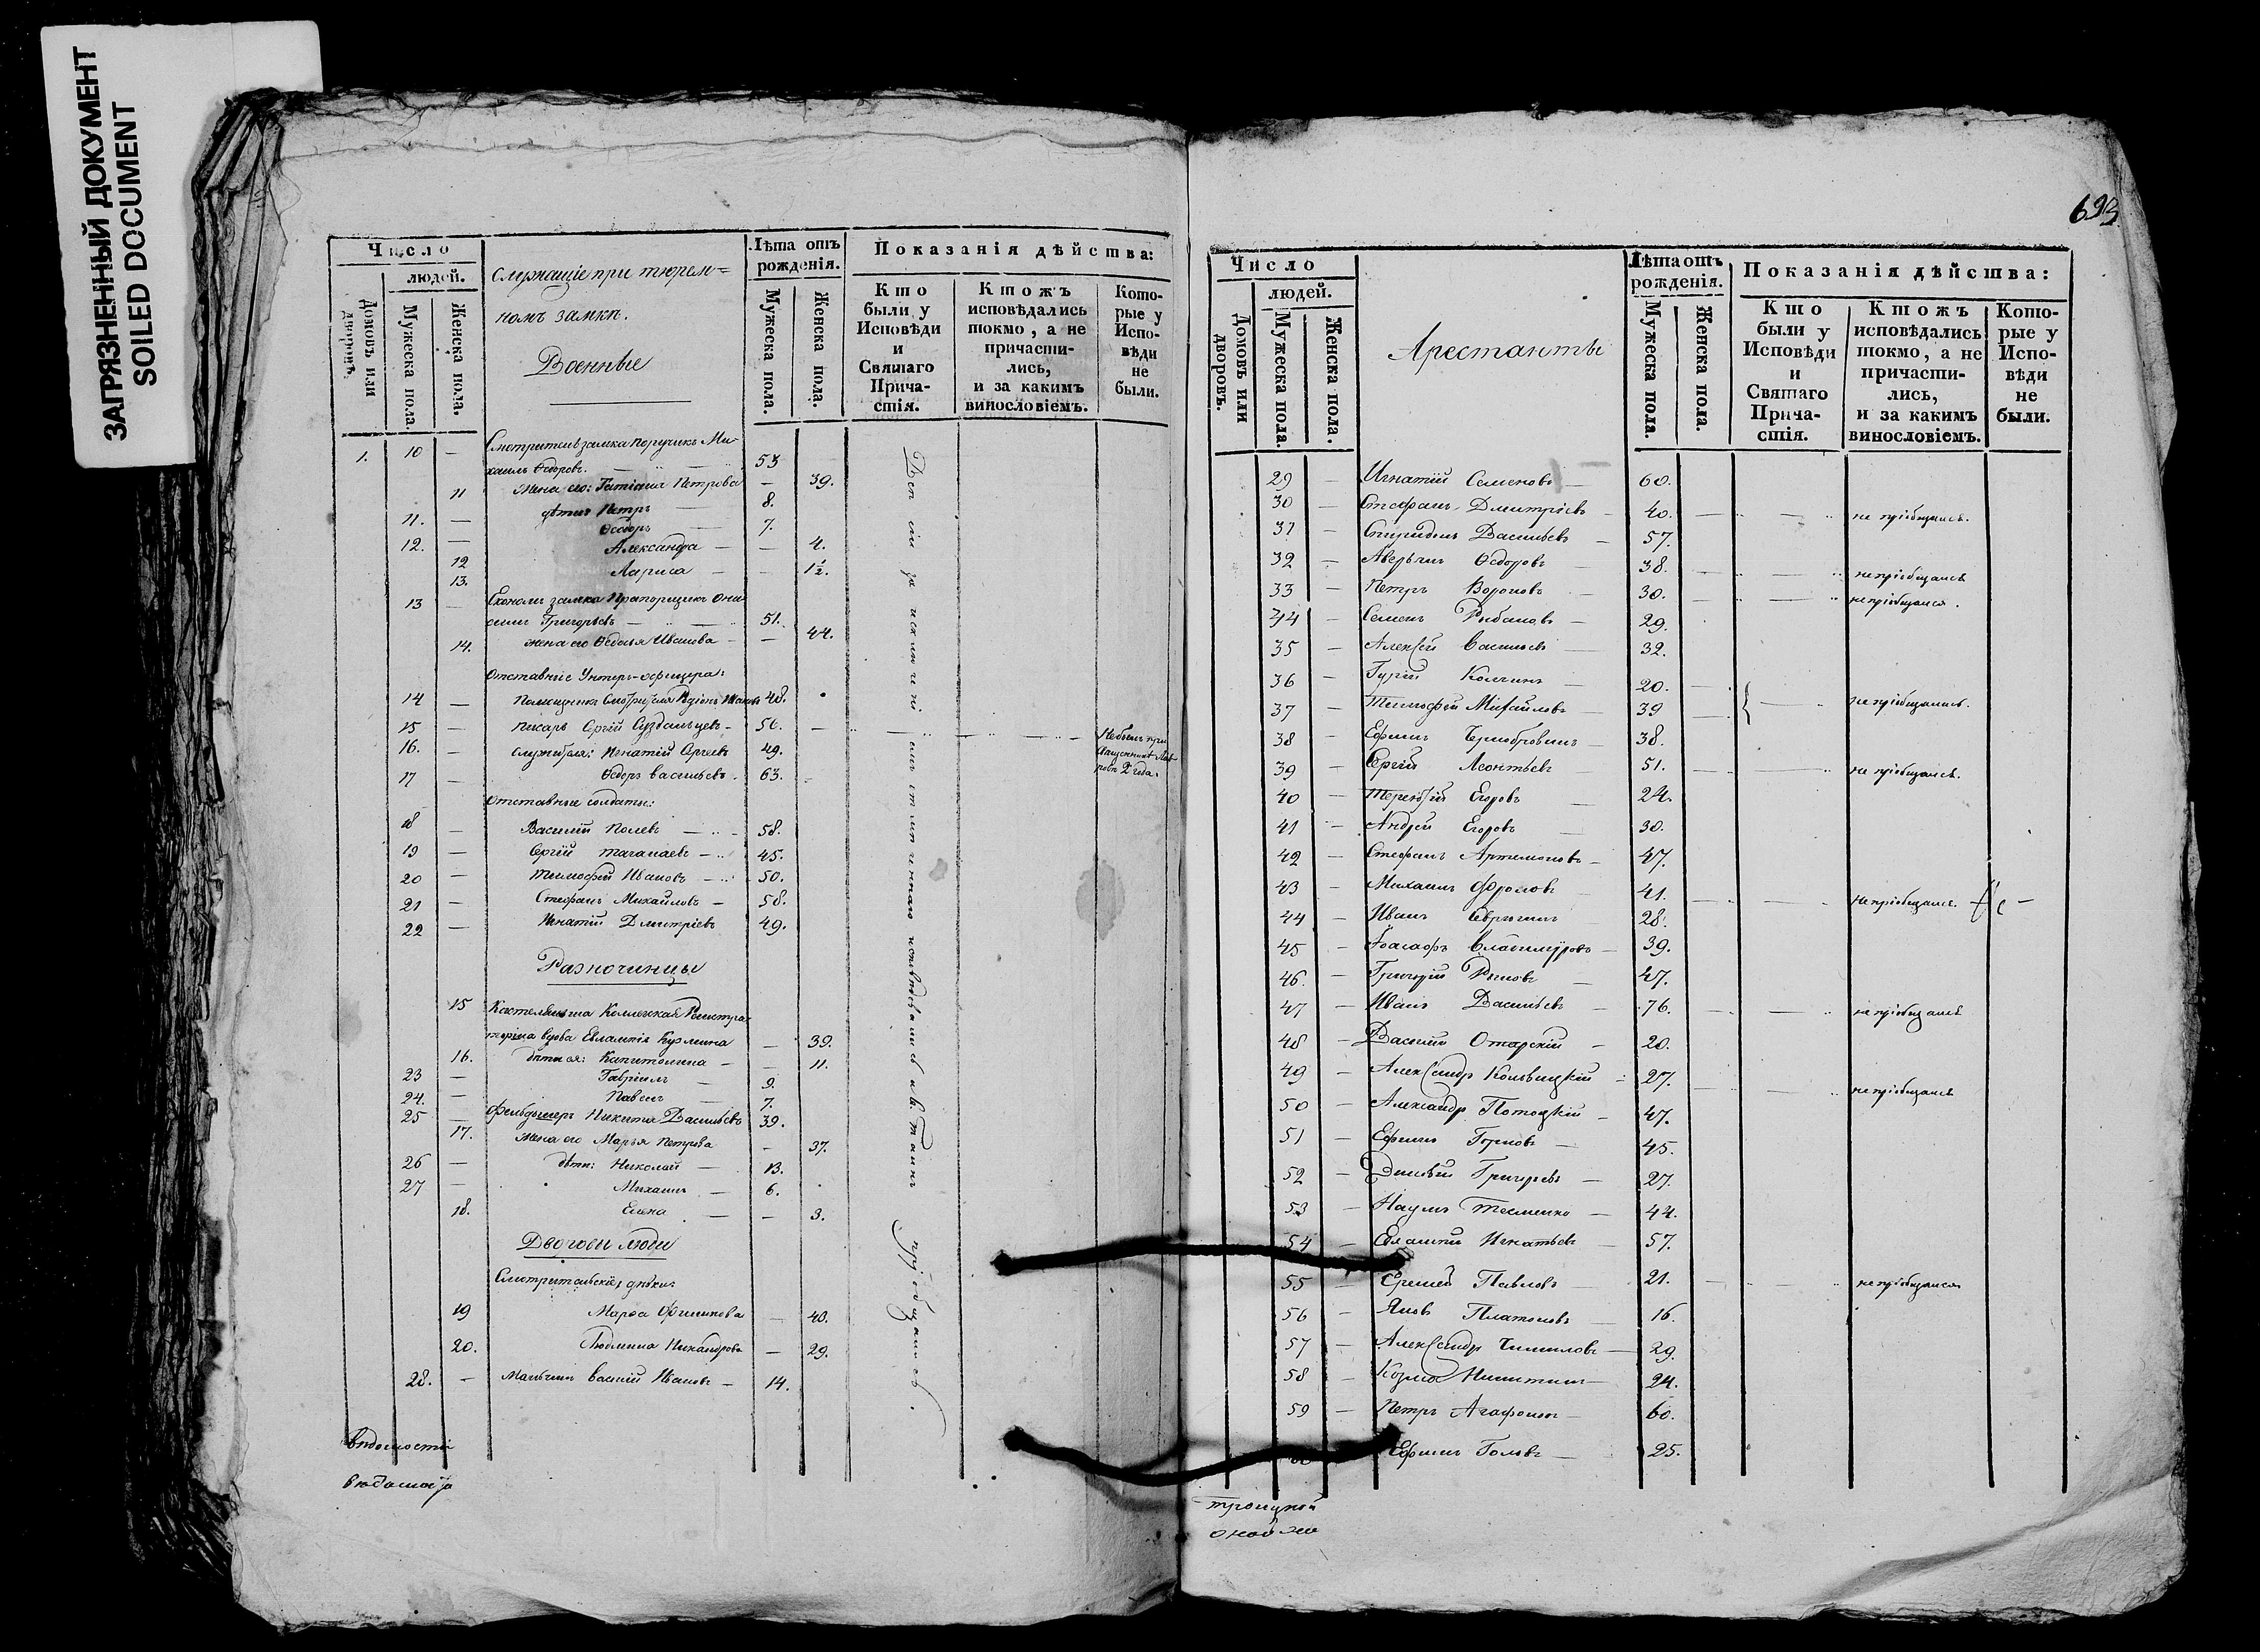 ЗАГРЯЗНЕННЫЙ ДОКУМЕНТ
SOILED DOCUMENT
Число
людей.
Домовъ или дворовъ.
Мужеска пола.
Женска пола.
Служащіе при тюрем=
номъ замкѣ.
Военные
Лѣта отъ рожденія.
Мужеска пола.
Женска пола.
Показанія дѣйства:
Кто были у Исповѣди и Святаго Причастія.
Ктожъ исповѣдались токмо, а не причастились, и за какимъ винословіемъ.
Которые у Исповѣди не были.
1. 10 — Смотритель замка Поручикъ Ми-
хаилъ Ѳедоровъ. — 53
11 Жена его: Татіана Петрова — 39.
11. — дѣти: Петръ — 8.
12. — Ѳеодоръ — 7.
12 Александра — — 4.
13. Лариса — — 1½.
13 — Экономъ замка Прапорщикъ Они
симъ Григорьевъ — 51.
14. жена его Ѳедосья Иванова — — 44.
Отставные Унтеръ-офицера:
14 — Помощникъ Смотрителя Родіонъ 48.
15 — писарь Сергій Суздальцевъ — 56. —
16. — служители: Игнатій Сергеевъ 49.
17 — Ѳедоръ Васильевъ. 63.
Не былъ при
2 года.
Отставные солдаты:
18 — Василій Полевъ — 58.
19 — Сергій Таганаевъ — 45.
20 — Тимофей Ивановъ — 50.
21 — Стефанъ Михайловъ — 58.
22 — Игнатій Дмитріевъ 49.
Разночинцы
15 Кастелянша Коллежская Регистра
торша вдова Евлампія Кузмина — 39.
16. дѣти ея: Капитолина — — 11.
23 — Гавріилъ — 9.
24. — Павелъ — 7.
25 — Фельдшеръ Никита Васильевъ 39.
17. Жена его Марья Петрова — 37.
26 — дѣти: Николай — 13.
27 — Михаилъ — 6.
18. Елена — — 3.
Дворовы люди
Смотрительскіе дѣвки:
19 Марѳа Филипова — 40.
20. Никандрова — 29.
28. — Мальчикъ Василій Ивановъ — 14.
Всѣ сіи за исключеніемъ отмѣченнаго исповѣдывались и св. Таинъ пріобщались.
вѣдомости
693
Число
людей.
Домовъ или дворовъ.
Мужеска пола.
Женска пола.
Арестанты
Лѣта отъ рожденія.
Мужеска пола.
Женска пола.
Показанія дѣйства:
Кто были у Исповѣди и Святаго Причастія.
Ктожъ исповѣдались токмо, а не причастились, и за какимъ винословіемъ.
Которые у Исповѣди не были.
29 — Игнатій Семеновъ — 60.
30 — Стефанъ Дмитріевъ — 40. — не пріобщался.
31 — Спиридонъ Васильевъ — 57.
32 — Аверьянъ Ѳедоровъ — 38. — не пріобщался
33 — Петръ Вороновъ — 30. — не пріобщался.
34 — Семенъ Рыбаковъ — 29.
35 — Алексей Васильевъ — 32.
36 — Гурій — 20. — не пріобщались.
37 — Тимофей Михайловъ — 39
38 — Ефимъ 38.
39 — Сергій Леонтьевъ 51. — не пріобщался.
40 — Терентій Егоровъ — 24.
41 — Андрей Егоровъ — 30.
42 — Стефанъ Артемоновъ — 47.
43 — Михаилъ Фроловъ 41. — не пріобщался.
44 — Иванъ — 28.
45 — Іоасафъ — 39.
46. — Григорій — 47.
47 — Иванъ Васильевъ — 76. — не пріобщался
48 — Василій Отарскій — 20.
49 — Александръ — 27. — не пріобщался
50 — Александръ Потоцкій — 47.
51 — Ефимъ — 45.
52 — Григорьевъ — 27.
53 — Наумъ Тесменко — 44.
54 — Игнатьевъ — 57.
55 — Еремей Павловъ — 21. — не пріобщался
56 — Яковъ Платоновъ — 16.
57 — Александръ — 29.
58 — Козма Никитинъ — 24.
59 — Петръ — 60.
Ефимъ — 25.
троицкой